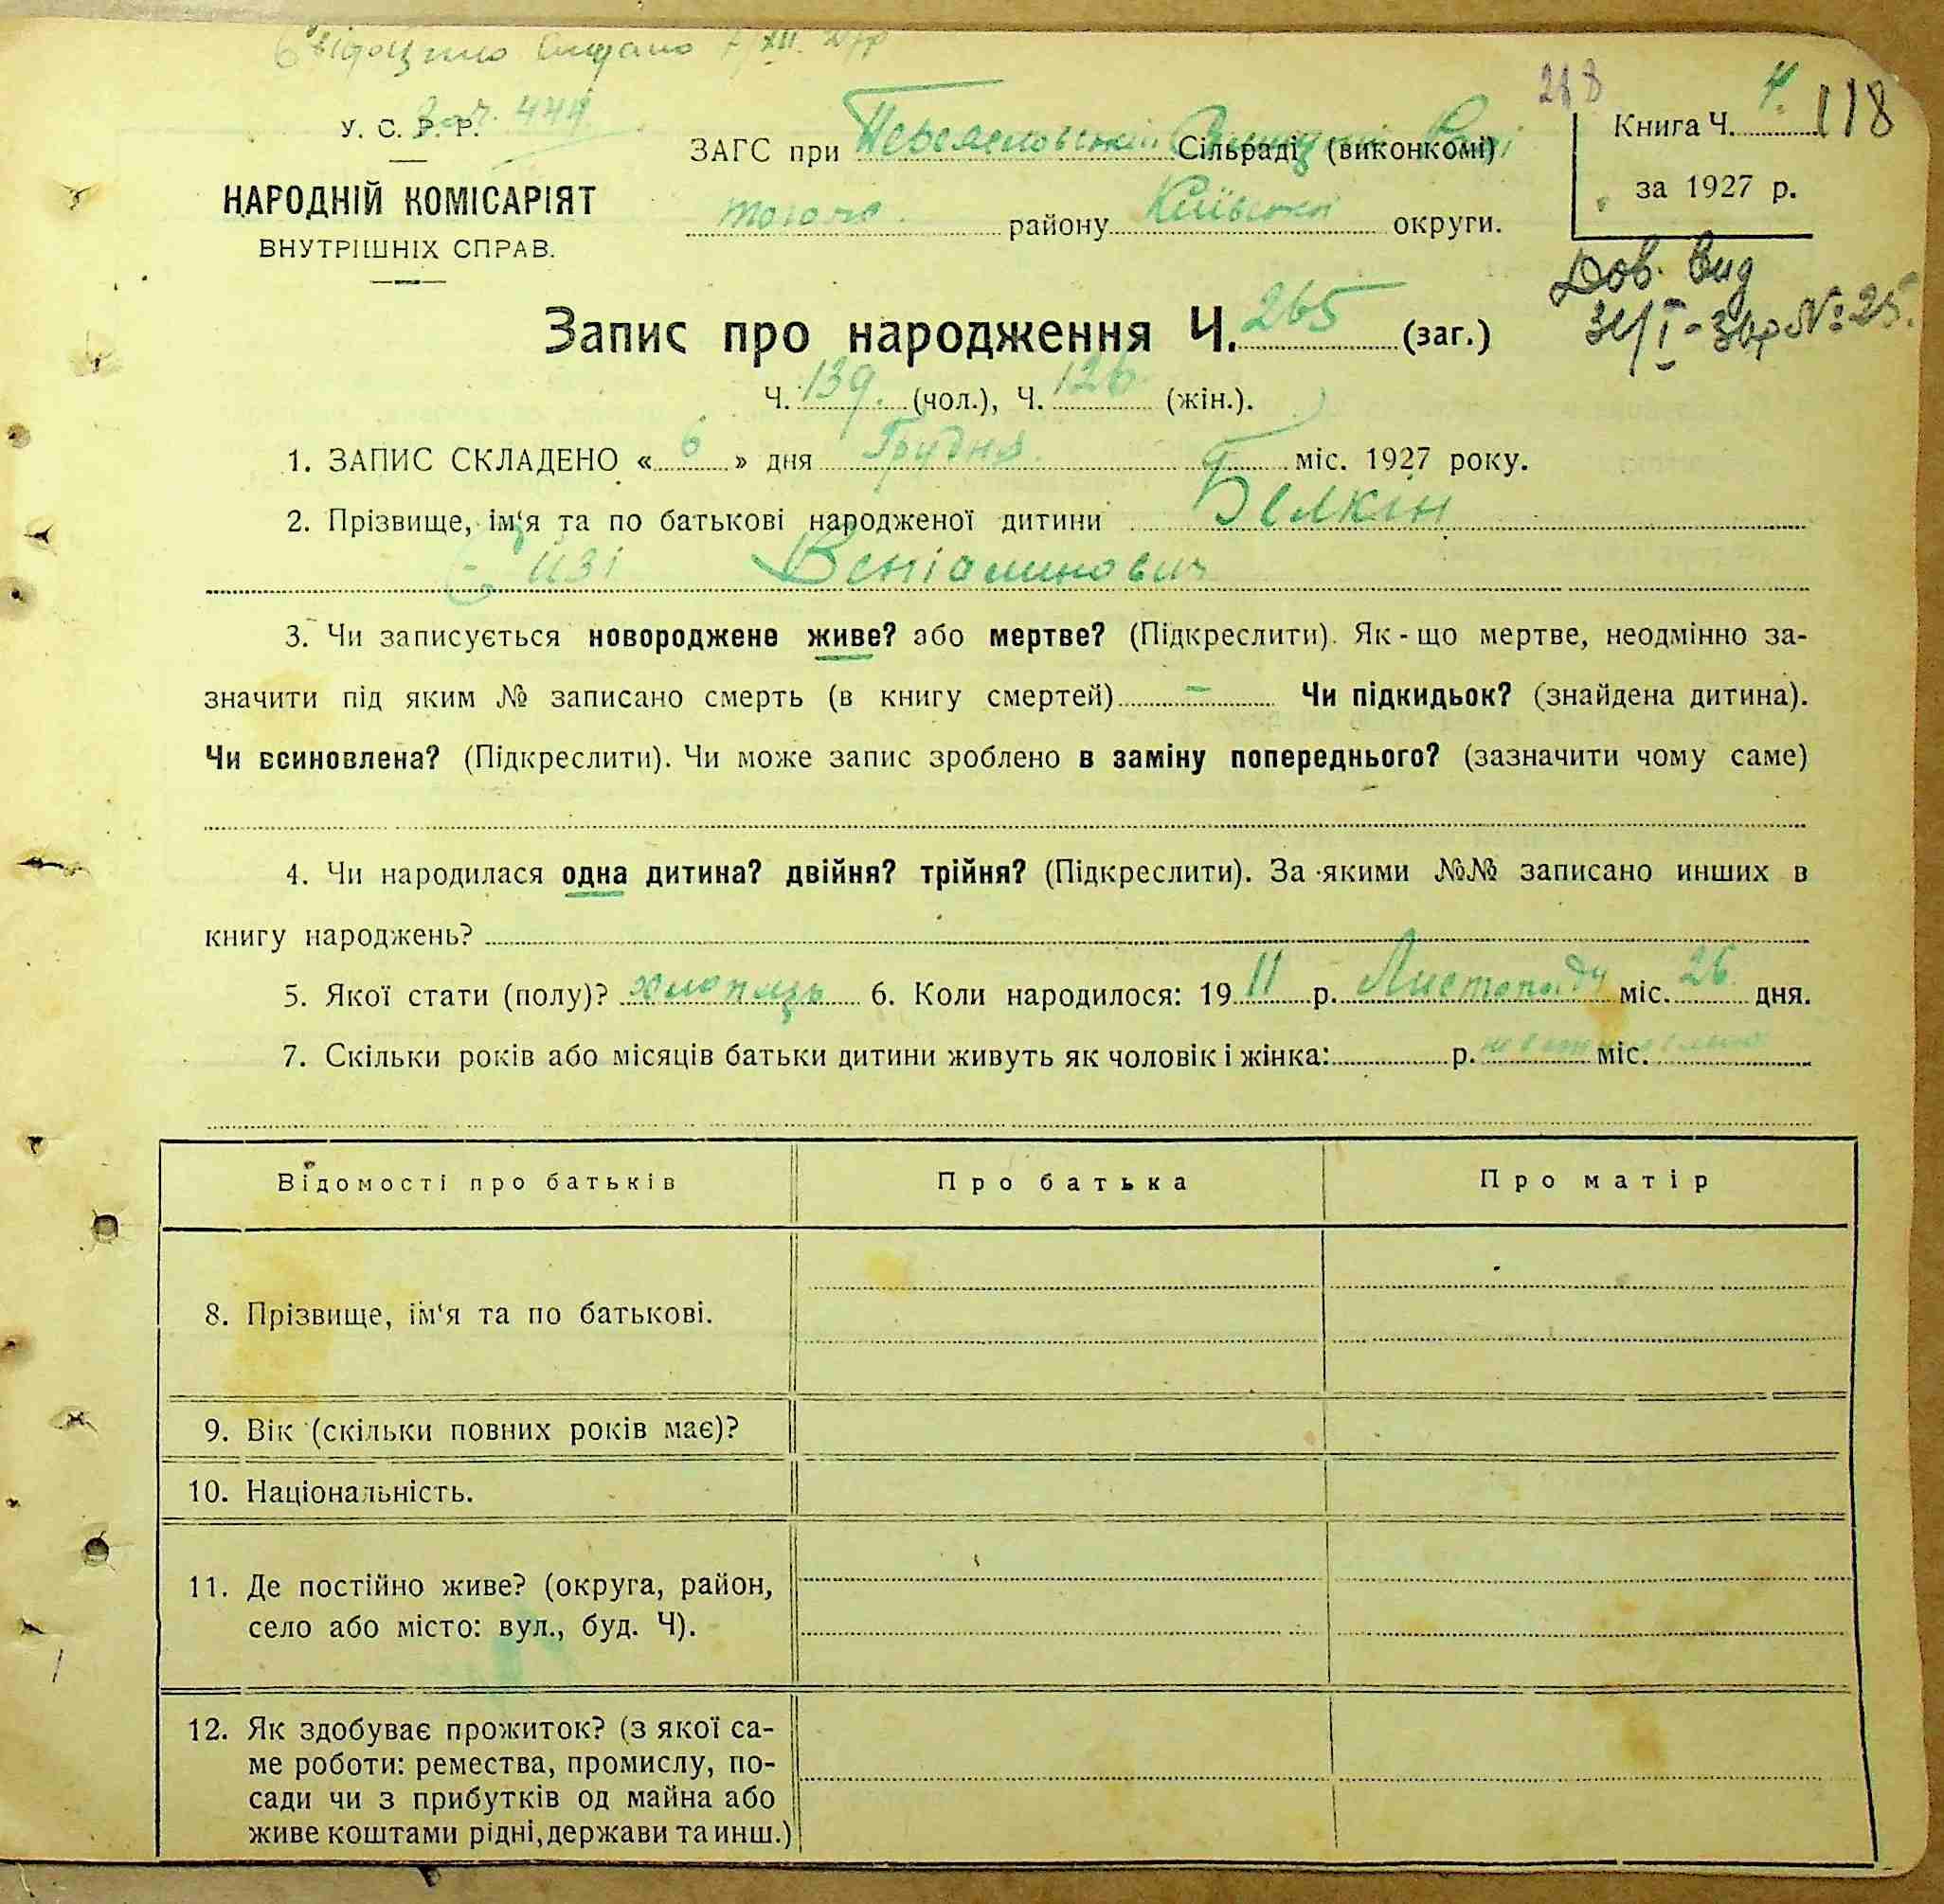 Свідоцтво видано 7/XII. 27р
218
У. С. Р. Р.
Зач. 444.
НАРОДНІЙ КОМІСАРІЯТ
ВНУТРІШНІХ СПРАВ.
ЗАГС при Переяславській Сільраді (виконкомі) Раді
того ж району Київської округи.
Книга Ч. 4. 118
за 1927 р.
Дов. вид
31/I - р № 25.
Запис про народження Ч. 265 (заг.)
Ч. 139. (чол.), Ч. 126 (жін.).
1. ЗАПИС СКЛАДЕНО « 6 » дня Грудня міс. 1927 року.
2. Прізвище, ім‘я та по батькові народженої дитини Белкін
Веніаминович
3. Чи записується новороджене живе? або мертве? (Підкреслити). Як-що мертве, неодмінно за-
значити під яким № записано смерть (в книгу смертей) – Чи підкидьок? (знайдена дитина).
Чи всиновлена? (Підкреслити). Чи може запис зроблено в заміну попереднього? (зазначити чому саме)
4. Чи народилася одна дитина? двійня? трійня? (Підкреслити). За якими №№ записано инших в
книгу народжень?
5. Якої стати (полу)? хлопець 6. Коли народилося: 19 11 р. Листопаду міс. 26 дня.
7. Скільки років або місяців батьки дитини живуть як чоловік і жінка: р. міс.
Відомості про батьків
Про батька
Про матір
8. Прізвище, ім‘я та по батькові.
9. Вік (скільки повних років має)?
10. Національність.
11. Де постійно живе? (округа, район,
село або місто: вул., буд. Ч).
12. Як здобуває прожиток? (з якої са-
ме роботи: ремества, промислу, по-
сади чи з прибутків од майна або
живе коштами рідні, держави та инш.)